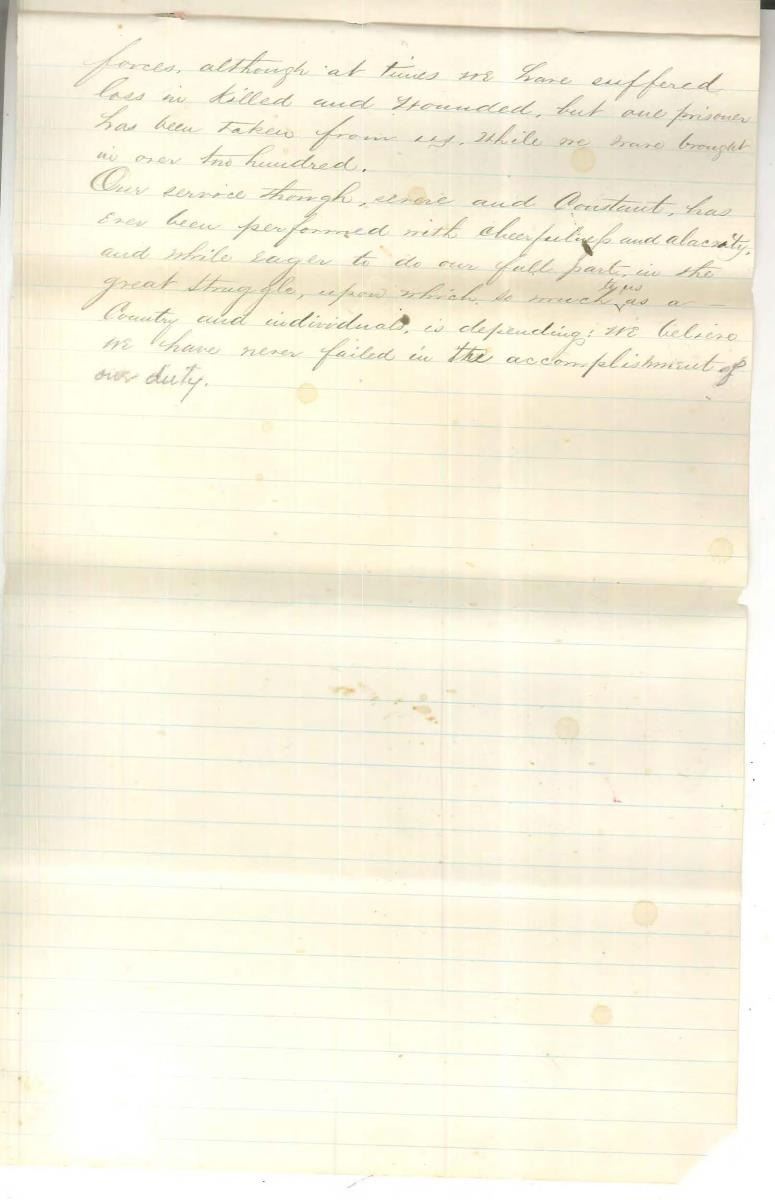 forces, although at times we have suffered
loss in killed and wounded, but one prisoner
has been taken from us, while we have brought
in over two hundred.
Our service though, severe and Constant, has
ever been performed with cheerfulness and alacrity,
and while eager to do our full part, in the
great struggle, upon which so much to us as a –
Country and individuals, is depending; we believe
we have never failed in the accomplishment of
our duty.